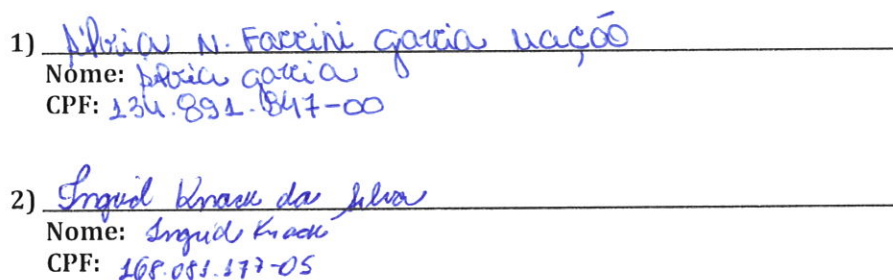 1) Silvia N. Faccini Garcia Nação
Nome: Silvia Garcia
CPF: 134.891.847-00
2) Ingrid Knack da Silva
Nome: Ingrid Knack
CPF: 168.081.177-05